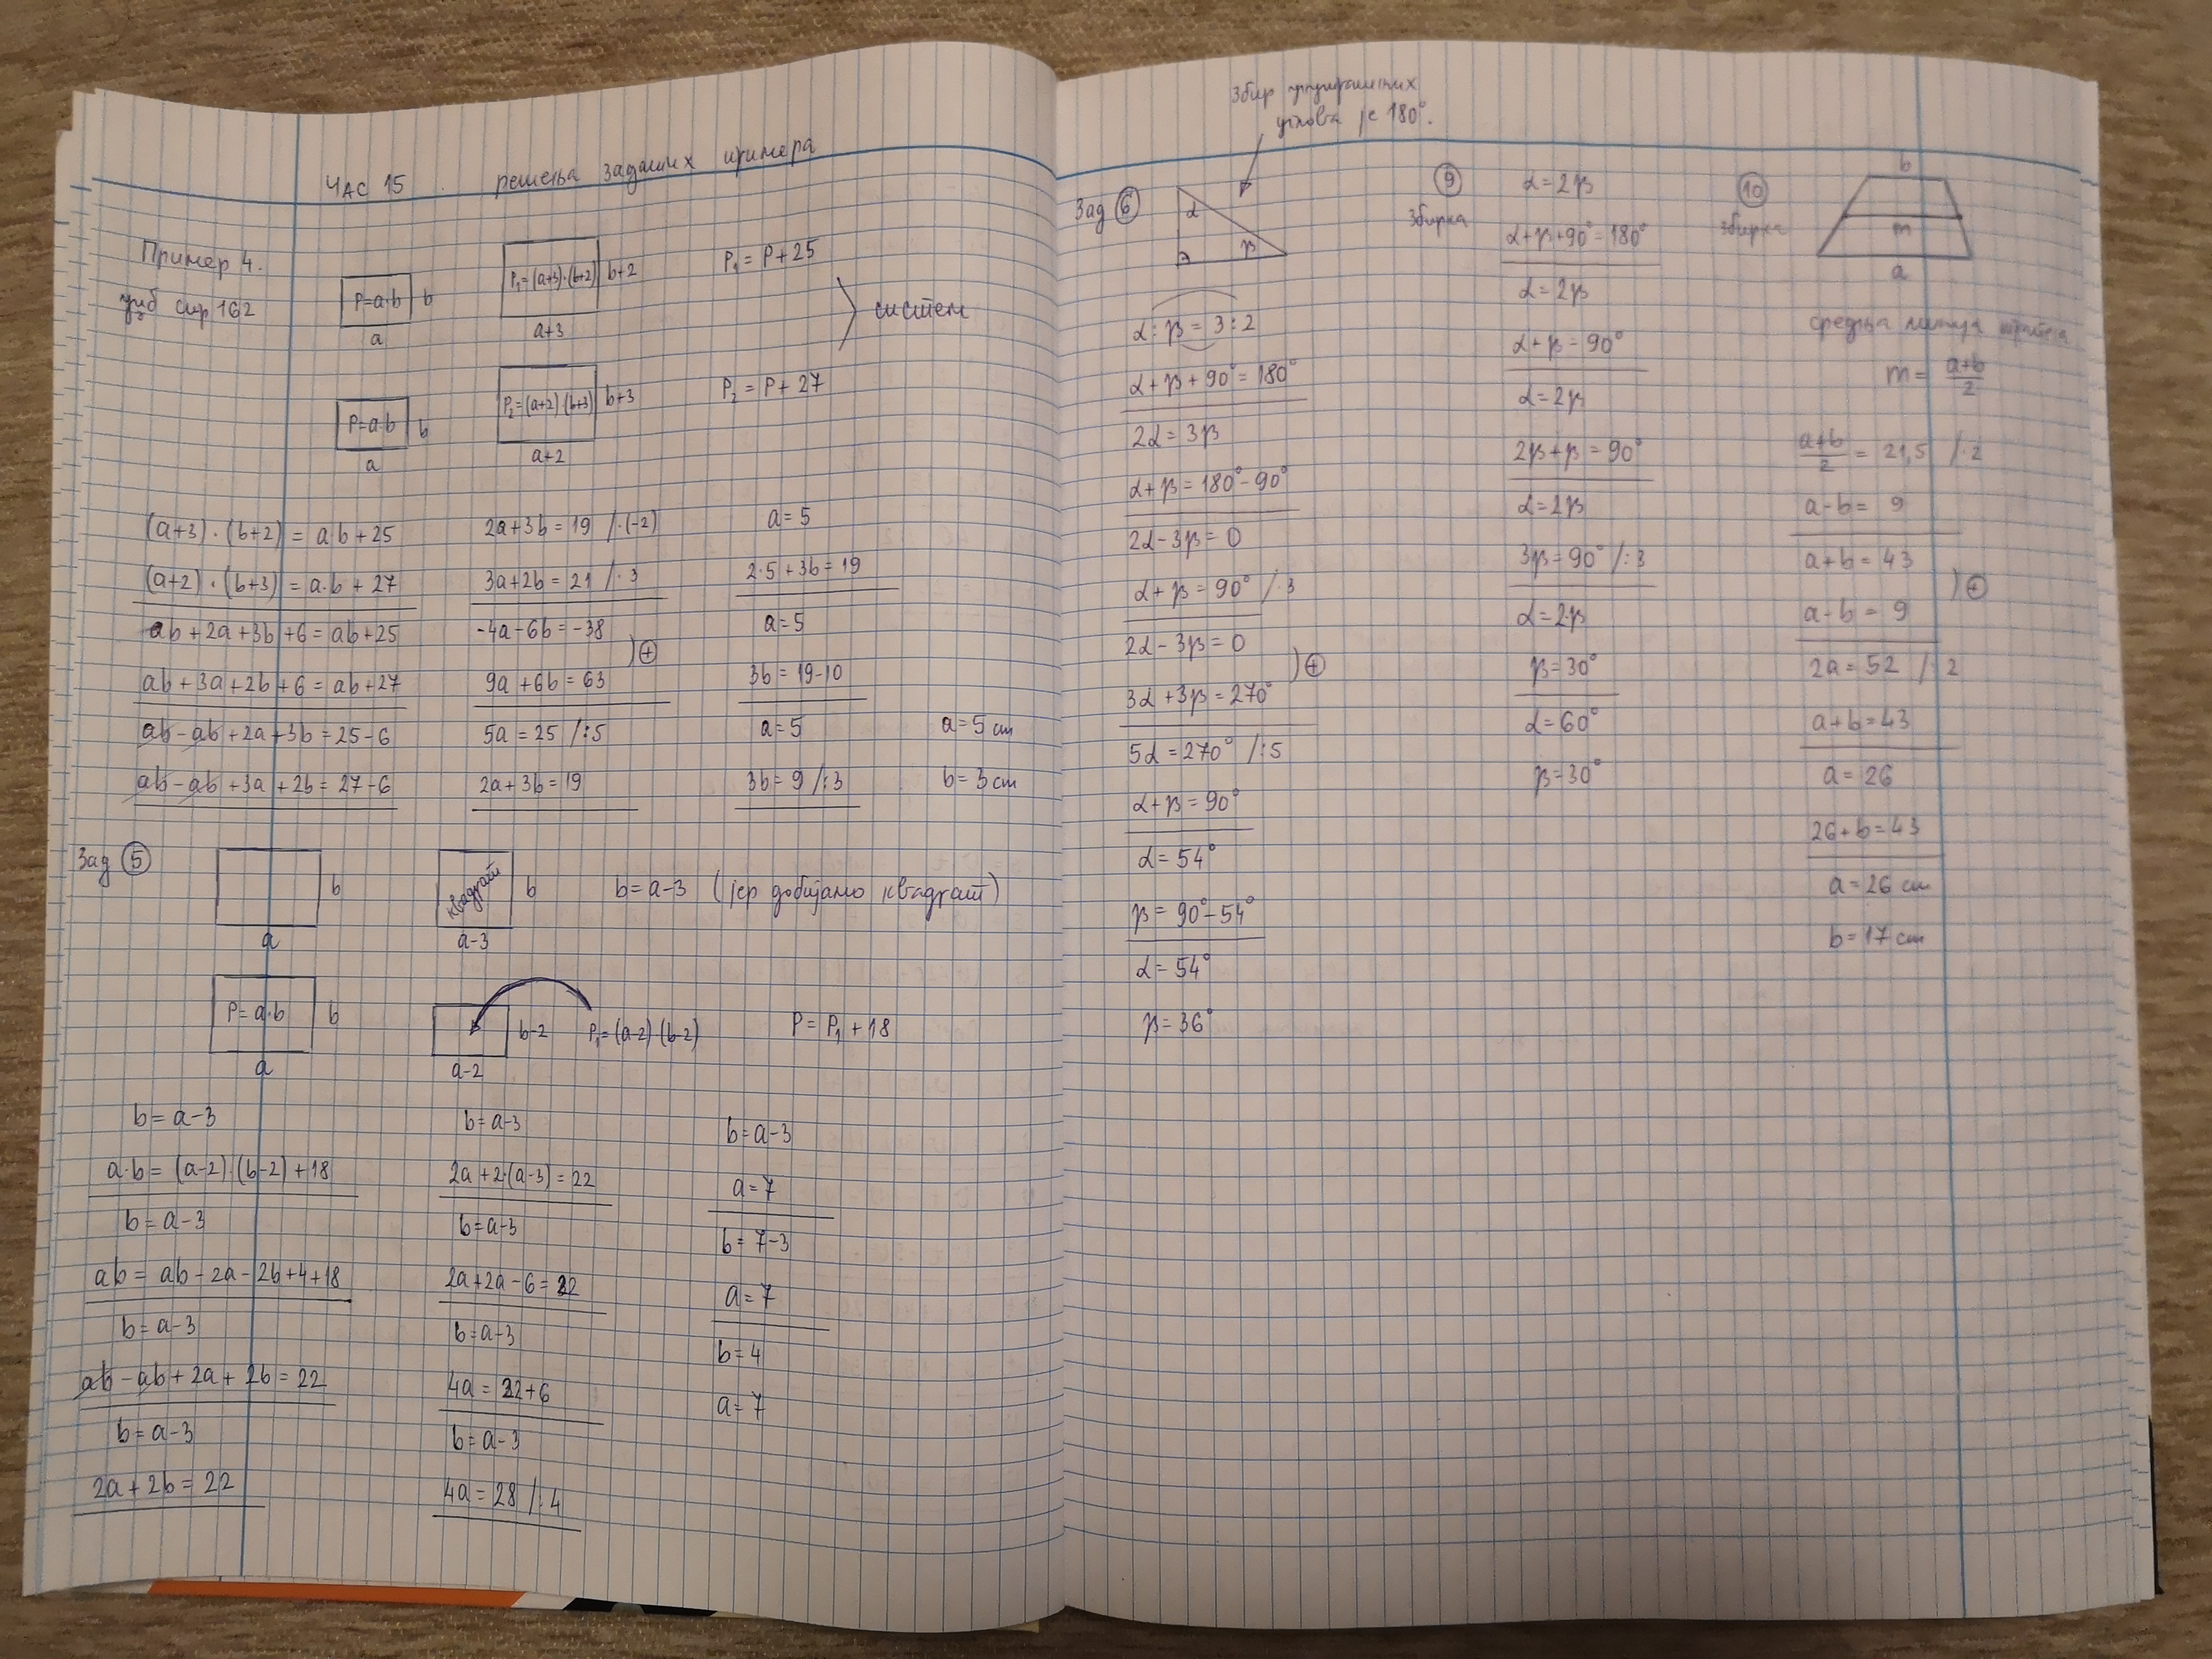 ЧАС 15 решења задатих примера
Пример 4.
уџб стр 162
P=a·b b
a
P₁=(a+3)·(b+2) b+2
a+3
P₁ = P+25
систем
P=a·b b
a
P₂=(a+2)·(b+3) b+3
a+2
P₂ = P+27
(a+3)·(b+2) = ab+25
(a+2)·(b+3) = a·b+27
ab+2a+3b+6=ab+25
ab+3a+2b+6=ab+27
ab-ab+2a+3b=25-6
ab-ab+3a+2b=27-6
2a+3b=19 /·(-2)
3a+2b=21 /·3
-4a-6b=-38
)⊕
9a+6b=63
5a=25 /:5
2a+3b=19
a=5
2·5+3b=19
a=5
3b=19-10
a=5
3b=9 /:3
a=5 cm
b=3 cm
Зад 5
b
a
квадрат b
a-3
b=a-3 (јер добијамо квадрат)
P=a·b b
a
b-2
a-2
P₁=(a-2)(b-2)
P=P₁+18
b=a-3
a·b=(a-2)·(b-2)+18
b=a-3
ab=ab-2a-2b+4+18
b=a-3
ab-ab+2a+2b=22
b=a-3
2a+2b=22
b=a-3
2a+2·(a-3)=22
b=a-3
2a+2a-6=22
b=a-3
4a=22+6
b=a-3
4a=28 /:4
b=a-3
a=7
b=7-3
a=7
b=4
a=7
Збир унутрашњих
углова је 180°.
Зад 6
α
β
α:β=3:2
α+β+90°=180°
2α=3β
α+β=180°-90°
2α-3β=0
α+β=90° /·3
2α-3β=0
)⊕
3α+3β=270°
5α=270° /:5
α+β=90°
α=54°
β=90°-54°
α=54°
β=36°
9
Збирка
α=2β
α+β+90°=180°
α=2β
α+β=90°
α=2β
2β+β=90°
α=2β
3β=90° /:3
α=2·β
β=30°
α=60°
β=30°
10
Збирка
b
m
a
средња линија трапеза
m=(a+b)/2
(a+b)/2=21,5 /·2
a-b=9
a+b=43
)⊕
a-b=9
2a=52 /:2
a+b=43
a=26
26+b=43
a=26 cm
b=17 cm